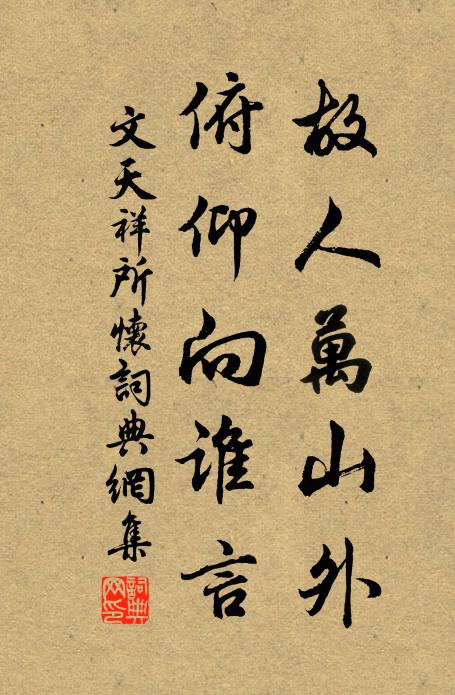 故人萬山外
俯仰向誰言
文天祥所懷詞典網集
詞典网印